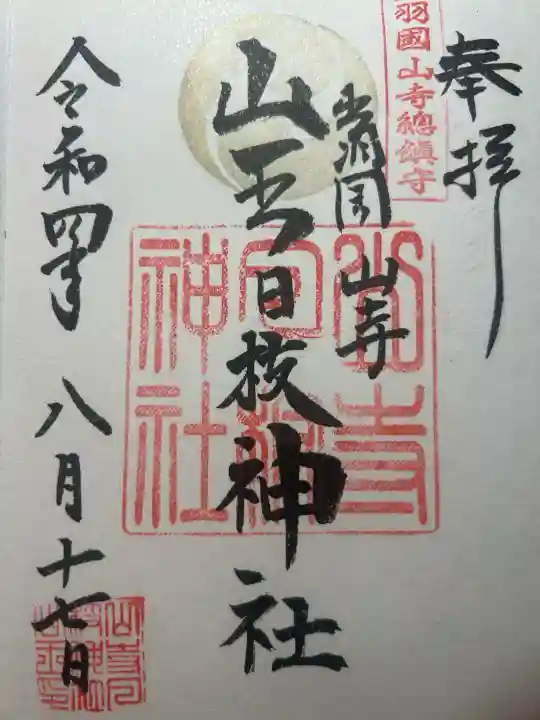 奉拝
羽國山寺總鎮守
出羽国 山寺
山王日枝神社
山寺日枝神社
令和四年 八月十七日